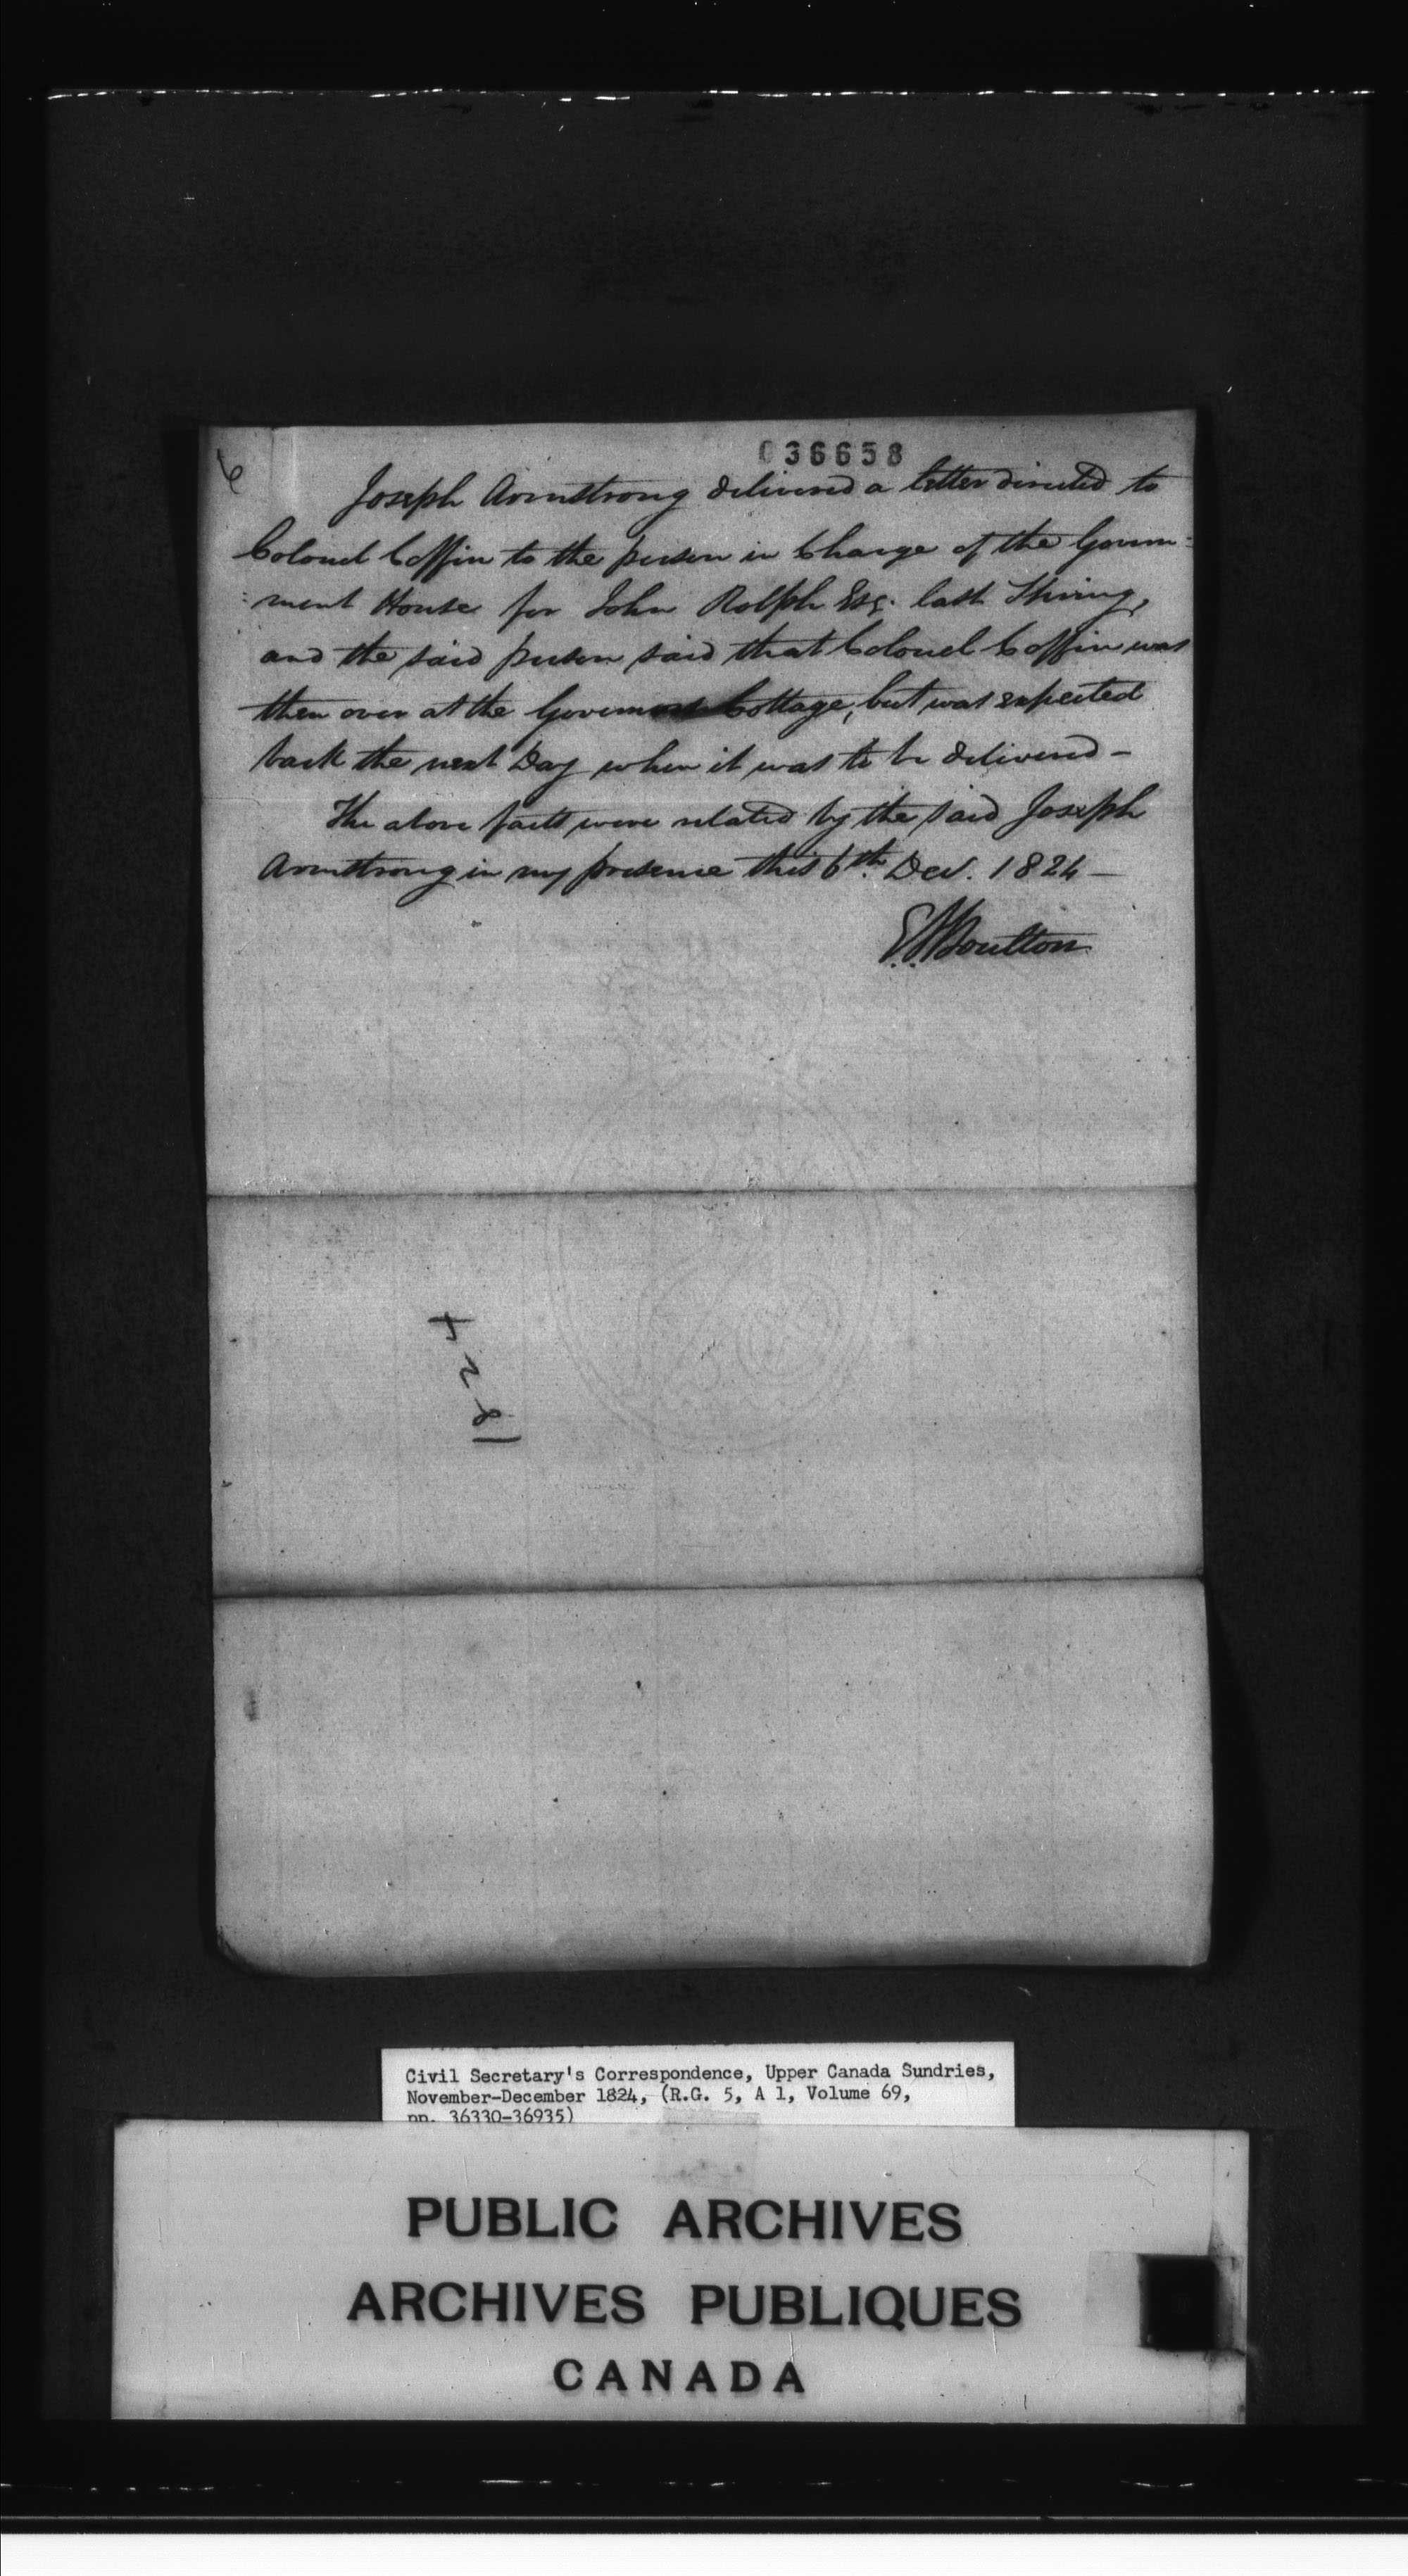 036658
6
Joseph Armstrong delivered a letter directed to
Colonel Coffin to the person in Charge of the Govern=
=ment House for John Rolph Esq. last Spring,
and the said person said that Colonel Coffin was
then over at the Governors Cottage, but was expected
back the next Day when it was to be delivered —
The above facts were related by the said Joseph
Armstrong in my presence this 6th. Decr. 1824 —
Boulton
1824
Civil Secretary's Correspondence, Upper Canada Sundries,
November-December 1824, (R.G. 5, A 1, Volume 69,
pp. 36330-36935)
PUBLIC ARCHIVES
ARCHIVES PUBLIQUES
CANADA